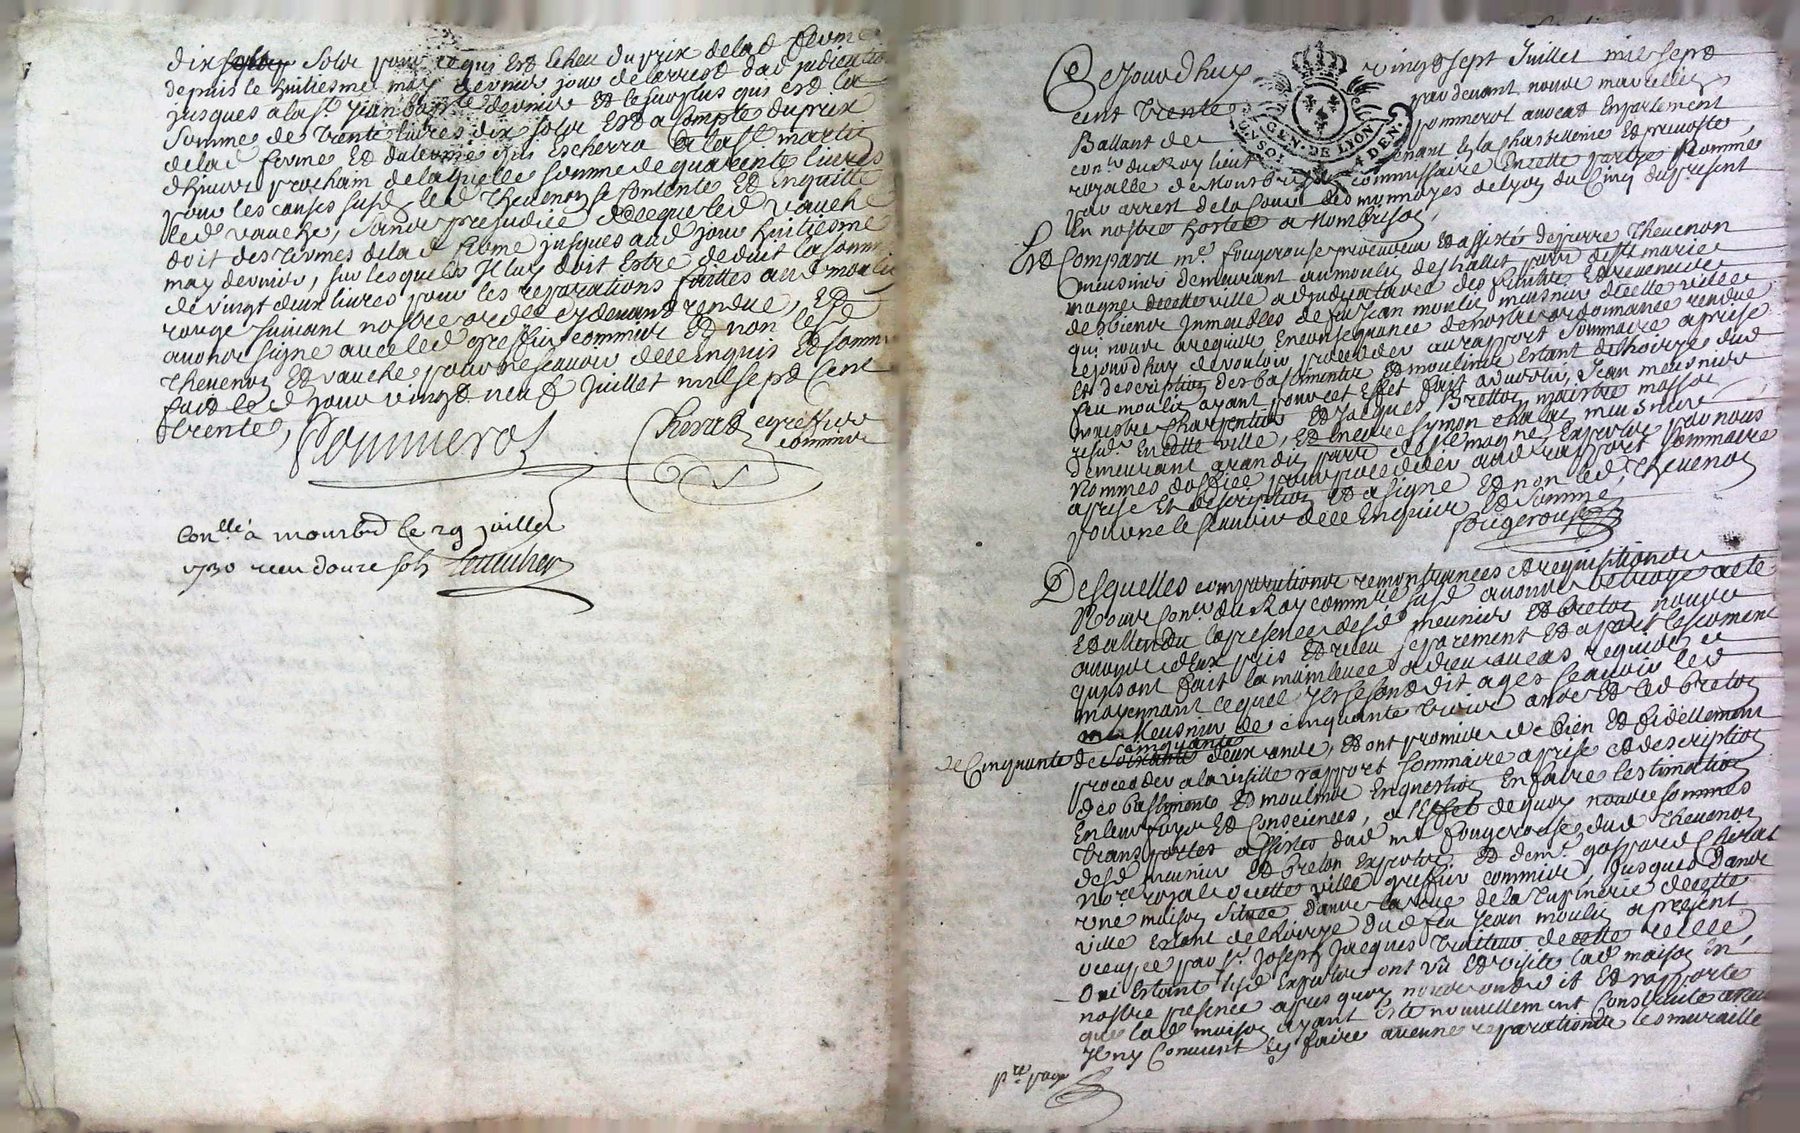 dix solz pour ce qui est escheu du prix de lad ferme
depuis le huitiesme may dernier jour de larrest dadjudication
jusques a la st Jean baptiste dernier et le surplus qui est la
somme de trente livres dix solz est a compte du prix
de lad ferme et du terme qui escherra a la st martin
dhiver prochain de laquelle somme de quarente livres
pour les causes susd led Thevenon se contente et en quitte
led vauche, sans prejudice de ce que led vauche
doit des termes de lad ferme jusques aud jour huitiesme
may dernier, sur lesquels Il luy doit estre deduit la somme
de vingt deux livres pour les reparations faittes aud moulin
rouge suivant nostre ordce cy devant rendue, Et
avons signe avec led greffier commis et non led
Thevenon et vauche pour ne scavoir de ce enquis et sommé
fait led jour vingt neuf Juillet mil sept cent
trente,
Pommerol
Chirat greffier
commis
Conllé a montbd le 29 juillet
1730 receu douze sols
Ce Jourdhuy vingt sept Juillet mil sept
cent trente par devant nous marcellin
Ballant de pommerol avocat en parlement
conr du Roy lieutenant en la chastellenie et prevosté
royalle de Montbrison commissaire en cette partye nommé
par arrest de la Cour des monnoyes de Lyon du cinq du present
en nostre hostel a Montbrison,
Est comparu me fougerouse procureur et assisté de pierre Thevenon
meusnier demeurant au moulin des hallet parr de ste marie
magne de cette ville adjudicataire des fruits et revenus
des biens Immeubles de feu Jean moulin meusnier de cette ville
qui nous a requis en consequance de nostre ordonnance rendue
cejourdhuy de vouloir proceder au rapport sommaire aprise
et description des bastiments et moulins estant de lhoirye dud
feu moulin ayant pour cet effet fait advertir, Jean meusnier
maistre charpentier et Jacques Bretton maistre masson
resid en cette ville, et encore symon chalas meusnier
demeurant a randin parr de ste magne experts par nous
nommes doffice pour proceder aud rapport sommaire
aprise et description et a signé et non led Thevenon
pour ne le scavoir de ce enquis et sommé
fougerouse
Desquelles comparutions remontrances et requisitions
Nous conr du Roy commre susd avons octroyé acte
et attendu la presence desd meunier et breton nous
avons deux pris et receu separement et a part le serment
quils ont fait la main levée a dieu au cas requis
moyennant lequel Ils se sont dit ages scavoir led
Meusnier de cinquante trois ans et led breton
de cinquante de soixante cinquante deux ans, et ont promis de bien et fidellement
proceder a la visitte rapport sommaire aprise et description
des bastiments et moulins en question en faire lestimation
en leur foy et consciences, a leffet de quoy nous sommes
transportes assistes dud me fougerouse, dud Thevenon
desd meunier et breton experts, et de me gaspard Chirat
nore royal de cette ville greffier commis, jusques dans
une maison sittuée dans la rue de la Tupinerie de cette
ville estant de lhoirye dud feu Jean moulin a present
occupée par sr Joseph Jacques traiteur de cette ville
Ou estants lesd experts ont vu et visité lad maison en
nostre presence apres quoy nous ont dit et rapporté
que lad maison ayant esté nouvellement construite
Il ny convient y faire aucune reparations les muraille
pre page